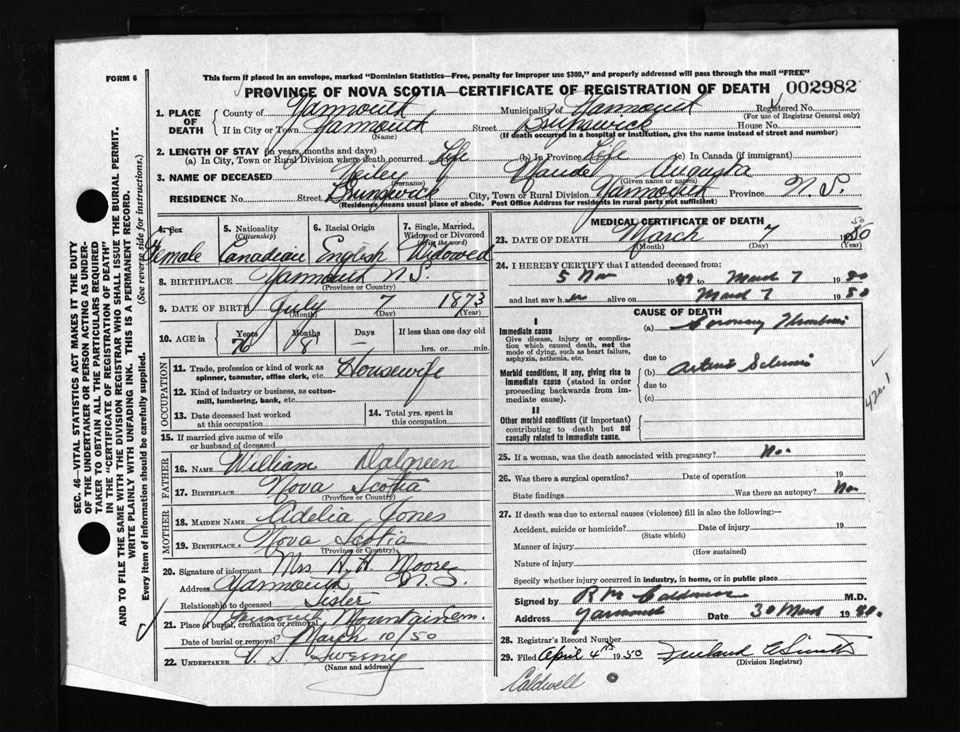 FORM 6
This form if placed in an envelope, marked "Dominion Statistics—Free, penalty for improper use $300," and properly addressed will pass through the mail "FREE"
PROVINCE OF NOVA SCOTIA—CERTIFICATE OF REGISTRATION OF DEATH 002982
1. PLACE OF DEATH
County of Yarmouth Municipality of Yarmouth Registered No.
(For use of Registrar General only)
If in City or Town Yarmouth Street Brunswick House No.
(Name) (If death occurred in a hospital or institution, give the name instead of street and number)
2. LENGTH OF STAY (in years, months and days)
(a) In City, Town or Rural Division where death occurred Life (b) In Province Life (c) In Canada (if immigrant)
3. NAME OF DECEASED Maude Augusta
(Surname) (Given name or names)
RESIDENCE No. Street Brunswick City, Town or Rural Division Yarmouth Province N.S.
(Residence means usual place of abode. Post Office Address for residents in rural parts not sufficient)
4. Sex
Female
5. Nationality
(Citizenship)
Canadian
6. Racial Origin
English
7. Single, Married, Widowed or Divorced
(write the word)
Widowed
8. BIRTHPLACE Yarmouth N.S.
(Province or Country)
9. DATE OF BIRTH July 7 1873
(Month) (Day) (Year)
10. AGE in Years Months Days If less than one day old
76 8 — hrs. or min.
OCCUPATION
11. Trade, profession or kind of work as spinner, teamster, office clerk, etc. Housewife
12. Kind of industry or business, as cotton-mill, lumbering, bank, etc.
13. Date deceased last worked at this occupation
14. Total yrs. spent in this occupation
15. If married give name of wife or husband of deceased
FATHER
16. NAME William Dalgreen
17. BIRTHPLACE Nova Scotia
(Province or Country)
MOTHER
18. MAIDEN NAME Adelia Jones
19. BIRTHPLACE Nova Scotia
(Province or Country)
20. Signature of informant Mrs. A. H. Moore
Address Yarmouth N.S.
Relationship to deceased Sister
21. Place of burial, cremation or removal Mountain Cem.
Date of burial or removal March 10/50
22. UNDERTAKER V. S. Sweeny
(Name and address)
MEDICAL CERTIFICATE OF DEATH
23. DATE OF DEATH March 7 50
(Month) (Day) (Year)
24. I HEREBY CERTIFY that I attended deceased from:
5 Nov 1949 to March 7 1950
and last saw h er alive on March 7 1950
CAUSE OF DEATH
I
Immediate cause
Give disease, injury or complication which caused death, not the mode of dying, such as heart failure, asphyxia, asthenia, etc.
(a) Coronary Thrombosis
due to
Morbid conditions, if any, giving rise to immediate cause (stated in order proceeding backwards from immediate cause).
(b) Arterio Sclerosis
due to
(c)
420.1
II
Other morbid conditions (if important) contributing to death but not causally related to immediate cause.
25. If a woman, was the death associated with pregnancy? No.
26. Was there a surgical operation? Date of operation 19
State findings Was there an autopsy? No
27. If death was due to external causes (violence) fill in also the following:—
Accident, suicide or homicide? Date of injury 19
(State which)
Manner of injury
(How sustained)
Nature of injury
Specify whether injury occurred in industry, in home, or in public place
Signed by R M Caldwell M.D.
Address Yarmouth Date 30 March 1950.
28. Registrar's Record Number
29. Filed April 4th 1950
(Division Registrar)
Caldwell
SEC. 46—VITAL STATISTICS ACT MAKES IT THE DUTY
OF THE UNDERTAKER OR PERSON ACTING AS UNDER-
TAKER TO OBTAIN ALL THE PARTICULARS REQUIRED
IN THE "CERTIFICATE OF REGISTRATION OF DEATH"
AND TO FILE THE SAME WITH THE DIVISION REGISTRAR WHO SHALL ISSUE THE BURIAL PERMIT.
WRITE PLAINLY WITH UNFADING INK. THIS IS A PERMANENT RECORD.
Every item of information should be carefully supplied. (See reverse side for instructions.)